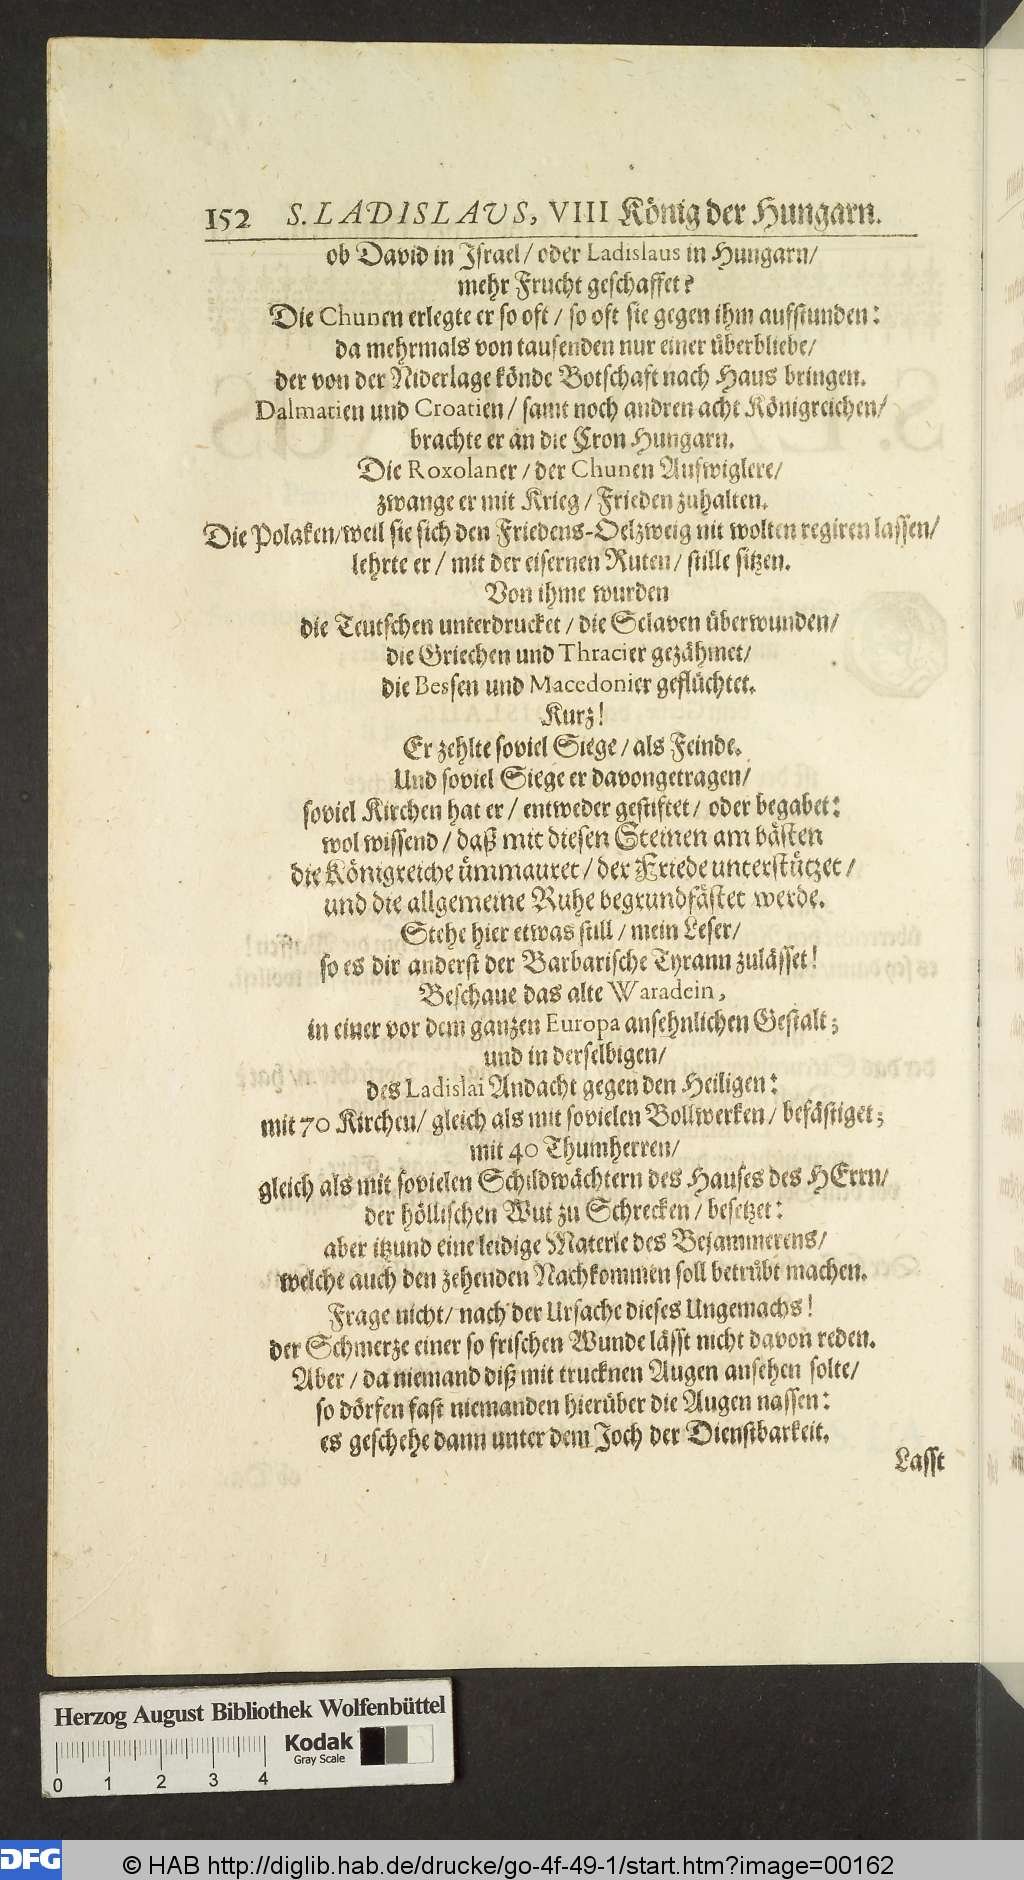 152 S. LADISLAVS, VIII König der Hungarn.
ob David in Israel / oder Ladislaus in Hungarn /
mehr Frucht geschaffet?
Die Chunen erlegte er so oft / so oft sie gegen ihm aufstunden:
da mehrmals von tausenden nur einer überbliebe /
der von der Niderlage könde Botschaft nach Haus bringen.
Dalmatien und Croatien / samt noch andren acht Königreichen /
brachte er an die Cron Hungarn.
Die Roxolaner / der Chunen Aufwiglere /
zwange er mit Krieg / Frieden zuhalten.
Die Polaken / weil sie sich den Friedens-Oelzweig nit wolten regiren lassen /
lehrte er / mit der eisernen Ruten / stille sitzen.
Von ihme wurden
die Teutschen unterdrucket / die Sclaven überwunden /
die Griechen und Thracier gezähmet /
die Bessen und Macedonier geflüchtet.
Kurz!
Er zehlte soviel Siege / als Feinde.
Und soviel Siege er davongetragen /
soviel Kirchen hat er / entweder gestiftet / oder begabet:
wol wissend / daß mit diesen Steinen am bästen
die Königreiche ümmauret / der Friede unterstützet /
und die allgemeine Ruhe begrundfästet werde.
Stehe hier etwas still / mein Leser /
so es dir anderst der Barbarische Tyrann zulässet!
Beschaue das alte Waradein,
in einer vor dem ganzen Europa ansehnlichen Gestalt;
und in derselbigen /
des Ladislai Andacht gegen den Heiligen:
mit 70 Kirchen / gleich als mit sovielen Bollwerken / befästiget;
mit 40 Thumherren /
gleich als mit sovielen Schildwächtern des Hauses des HErrn /
der höllischen Wut zu Schrecken / besetzet:
aber itzund eine leidige Materie des Bejammerens /
welche auch den zehenden Nachkommen soll betrübt machen.
Frage nicht / nach der Ursache dieses Ungemachs!
der Schmerze einer so frischen Wunde lässt nicht davon reden.
Aber / da niemand diß mit trucknen Augen ansehen solte /
so dörfen fast niemanden hierüber die Augen nassen:
es geschehe dann unter dem Joch der Dienstbarkeit.
Lasst
Herzog August Bibliothek Wolfenbüttel
Kodak
Gray Scale
0 1 2 3 4
DFG
© HAB http://diglib.hab.de/drucke/go-4f-49-1/start.htm?image=00162